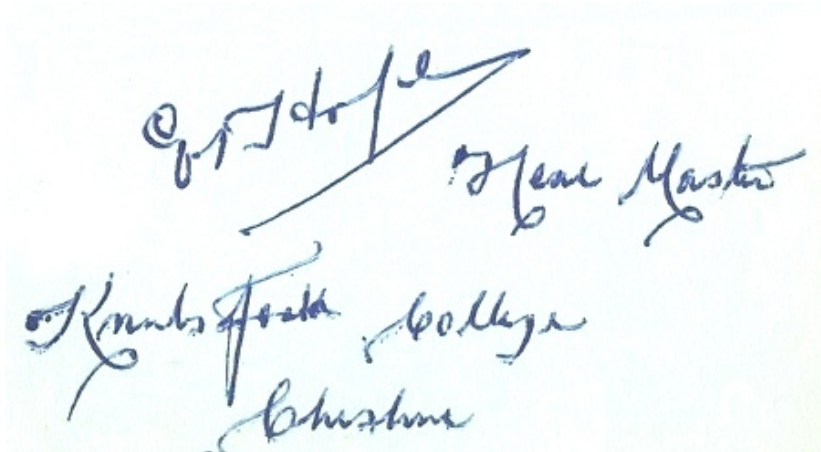 Head Master
Knutsford College
Cheshire